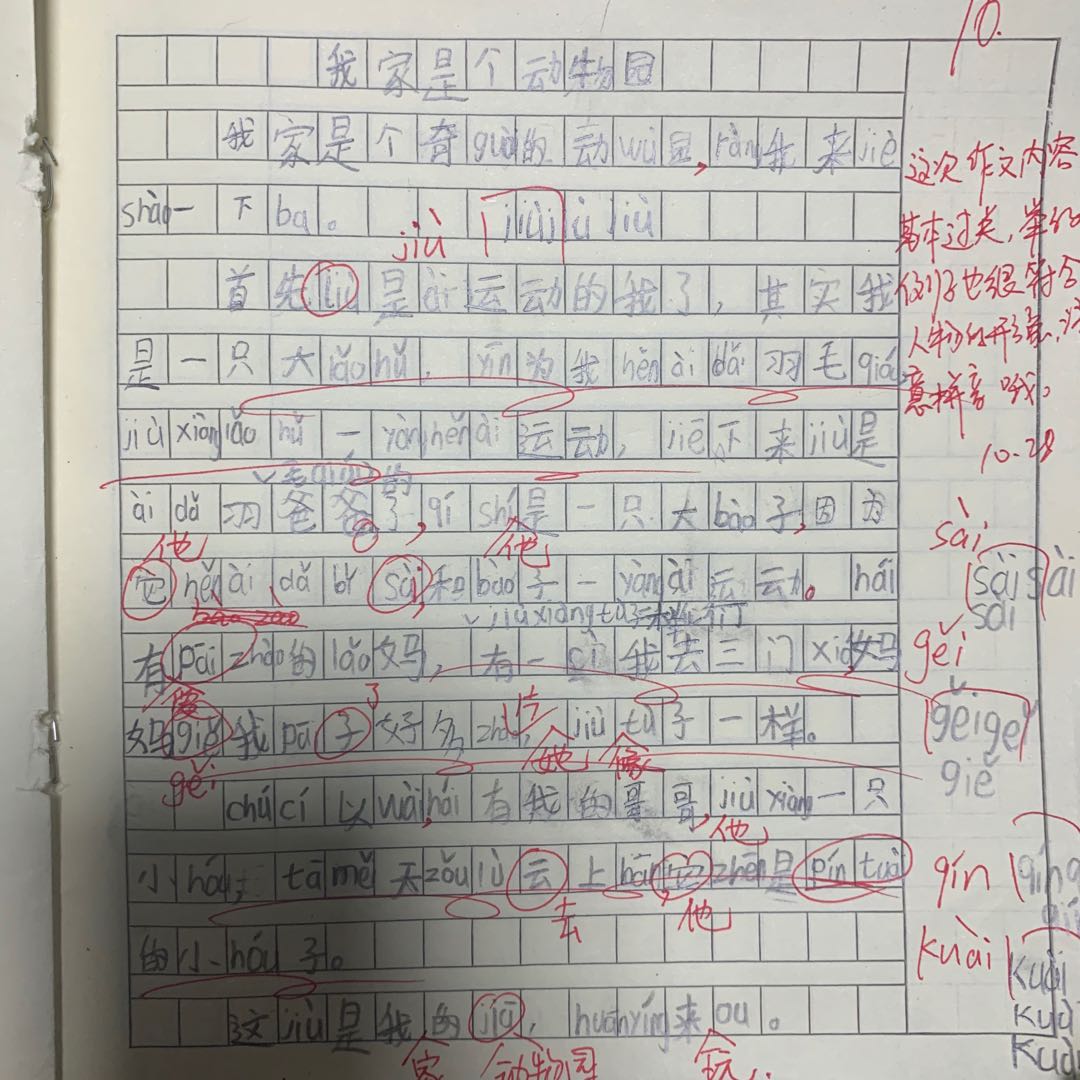 10.
我家是个动物园
我家是个奇guài的动wù园,ràng我来jiè
shào一下ba。
jiù jiùjiùjiù
首先jiù是ài运动的我了,其实我
是一只大lǎohǔ,yīn为我hěnàidǎi羽毛qiú
jiùxiànglǎohǔ一yànghěnài运动,jiē下来jiù是
毛qiú的
àidǎ羽爸爸了,qí shí是一只大bào子,因为
他 他
它hěnài、dǎbǐsài,和bào子一yàngài运动。hái
jiùxiàngtùzi一样
有pāizhào的lǎo妈,有一cì我去三门xià妈
像 了 片
妈giě我pāi子好多zhào,jiùtù子一样。
gěi 她 像
chúcí以wài,hái有我的哥哥,jiùxiàng一只
他
小hóu,tāměi天zǒulù云上bān,它zhēn是píntuō
去 他
的小hóu子。
这jiù是我的jiā,huānyíng来ou。
家 动物园 玩
这次作文内容
基本过关,举的
例子也很符合
人物的形象,注
意拼音哦。
10.28
sài
sàisài
sài
gěi
gěigěi
giě
qín
kuài
kuài
kuài
kuài